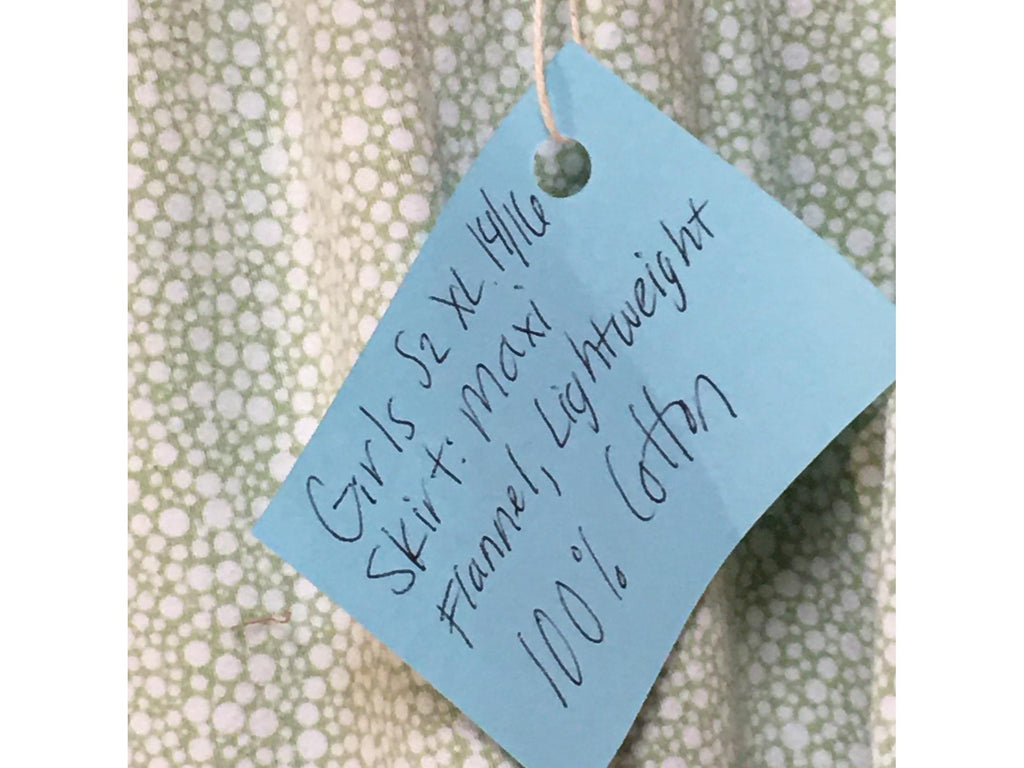 Girls Sz XL 14/16
Skirt: Maxi
Flannel, Lightweight
100% Cotton